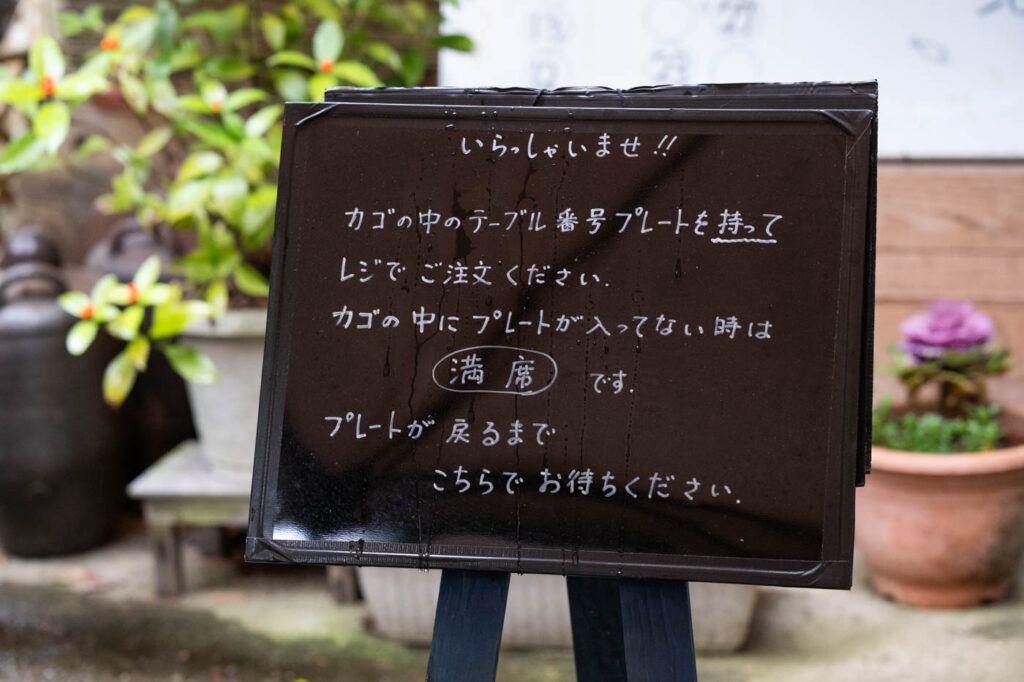 いらっしゃいませ!!
カゴの中のテーブル番号プレートを持って
レジでご注文ください.
カゴの中にプレートが入ってない時は
満席 です.
プレートが戻るまで
こちらでお待ちください.